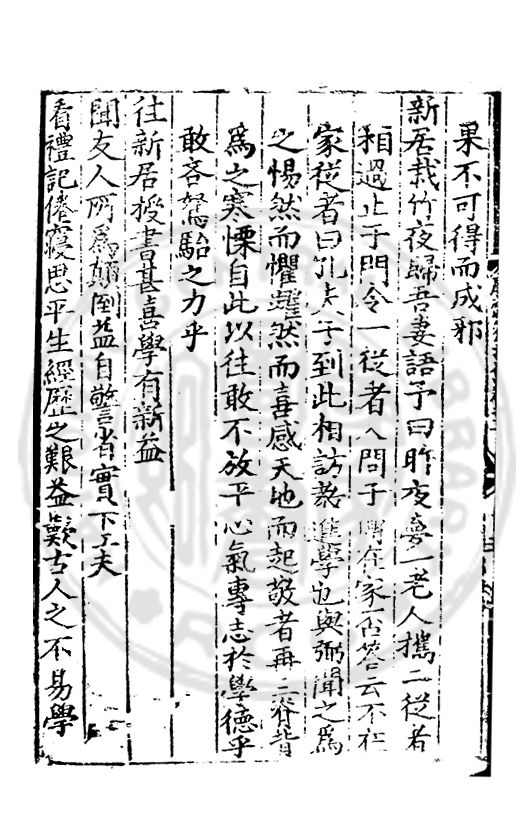 果不可得而成邪
新居栽竹夜歸吾妻語予曰昨夜夢一老人攜二從者
相過止于門令一從者入問于與弼在家否答云不在
家從者曰孔夫子到此相訪教進學也與弼聞之爲
之惕然而懼躍然而喜感天地而起敬者再三脊背
爲之寒慄自此以往敢不放平心氣專志於學德乎
敢吝駑駘之力乎
往新居授書甚喜學有新益
聞友人所爲顛倒益自警省實下工夫
看禮記倦寢思平生經歷之艱益歎古人之不易學